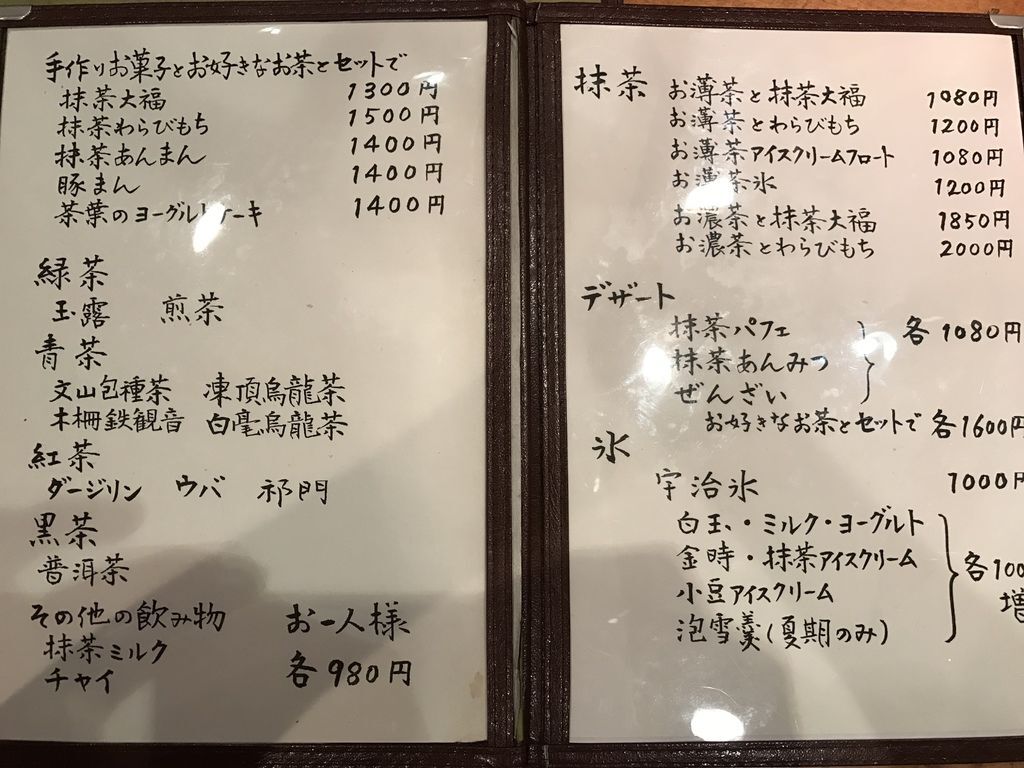 手作りお菓子とお好きなお茶とセットで
抹茶大福 1300円
抹茶わらびもち 1500円
抹茶あんまん 1400円
豚まん 1400円
茶葉のヨーグルトケーキ 1400円
緑茶
玉露 煎茶
青茶
文山包種茶 凍頂烏龍茶
木柵鉄観音 白毫烏龍茶
紅茶
ダージリン ウバ 祁門
黒茶
普洱茶
その他の飲み物 お一人様
抹茶ミルク
チャイ 各980円
抹茶 お薄茶と抹茶大福 1080円
お薄茶とわらびもち 1200円
お薄茶アイスクリームフロート 1080円
お薄茶氷 1200円
お濃茶と抹茶大福 1850円
お濃茶とわらびもち 2000円
デザート
抹茶パフェ 各1080円
抹茶あんみつ
ぜんざい
お好きなお茶とセットで 各1600円
氷
宇治氷 1000円
白玉・ミルク・ヨーグルト
金時・抹茶アイスクリーム 各100
小豆アイスクリーム 増
泡雪羹(夏期のみ)